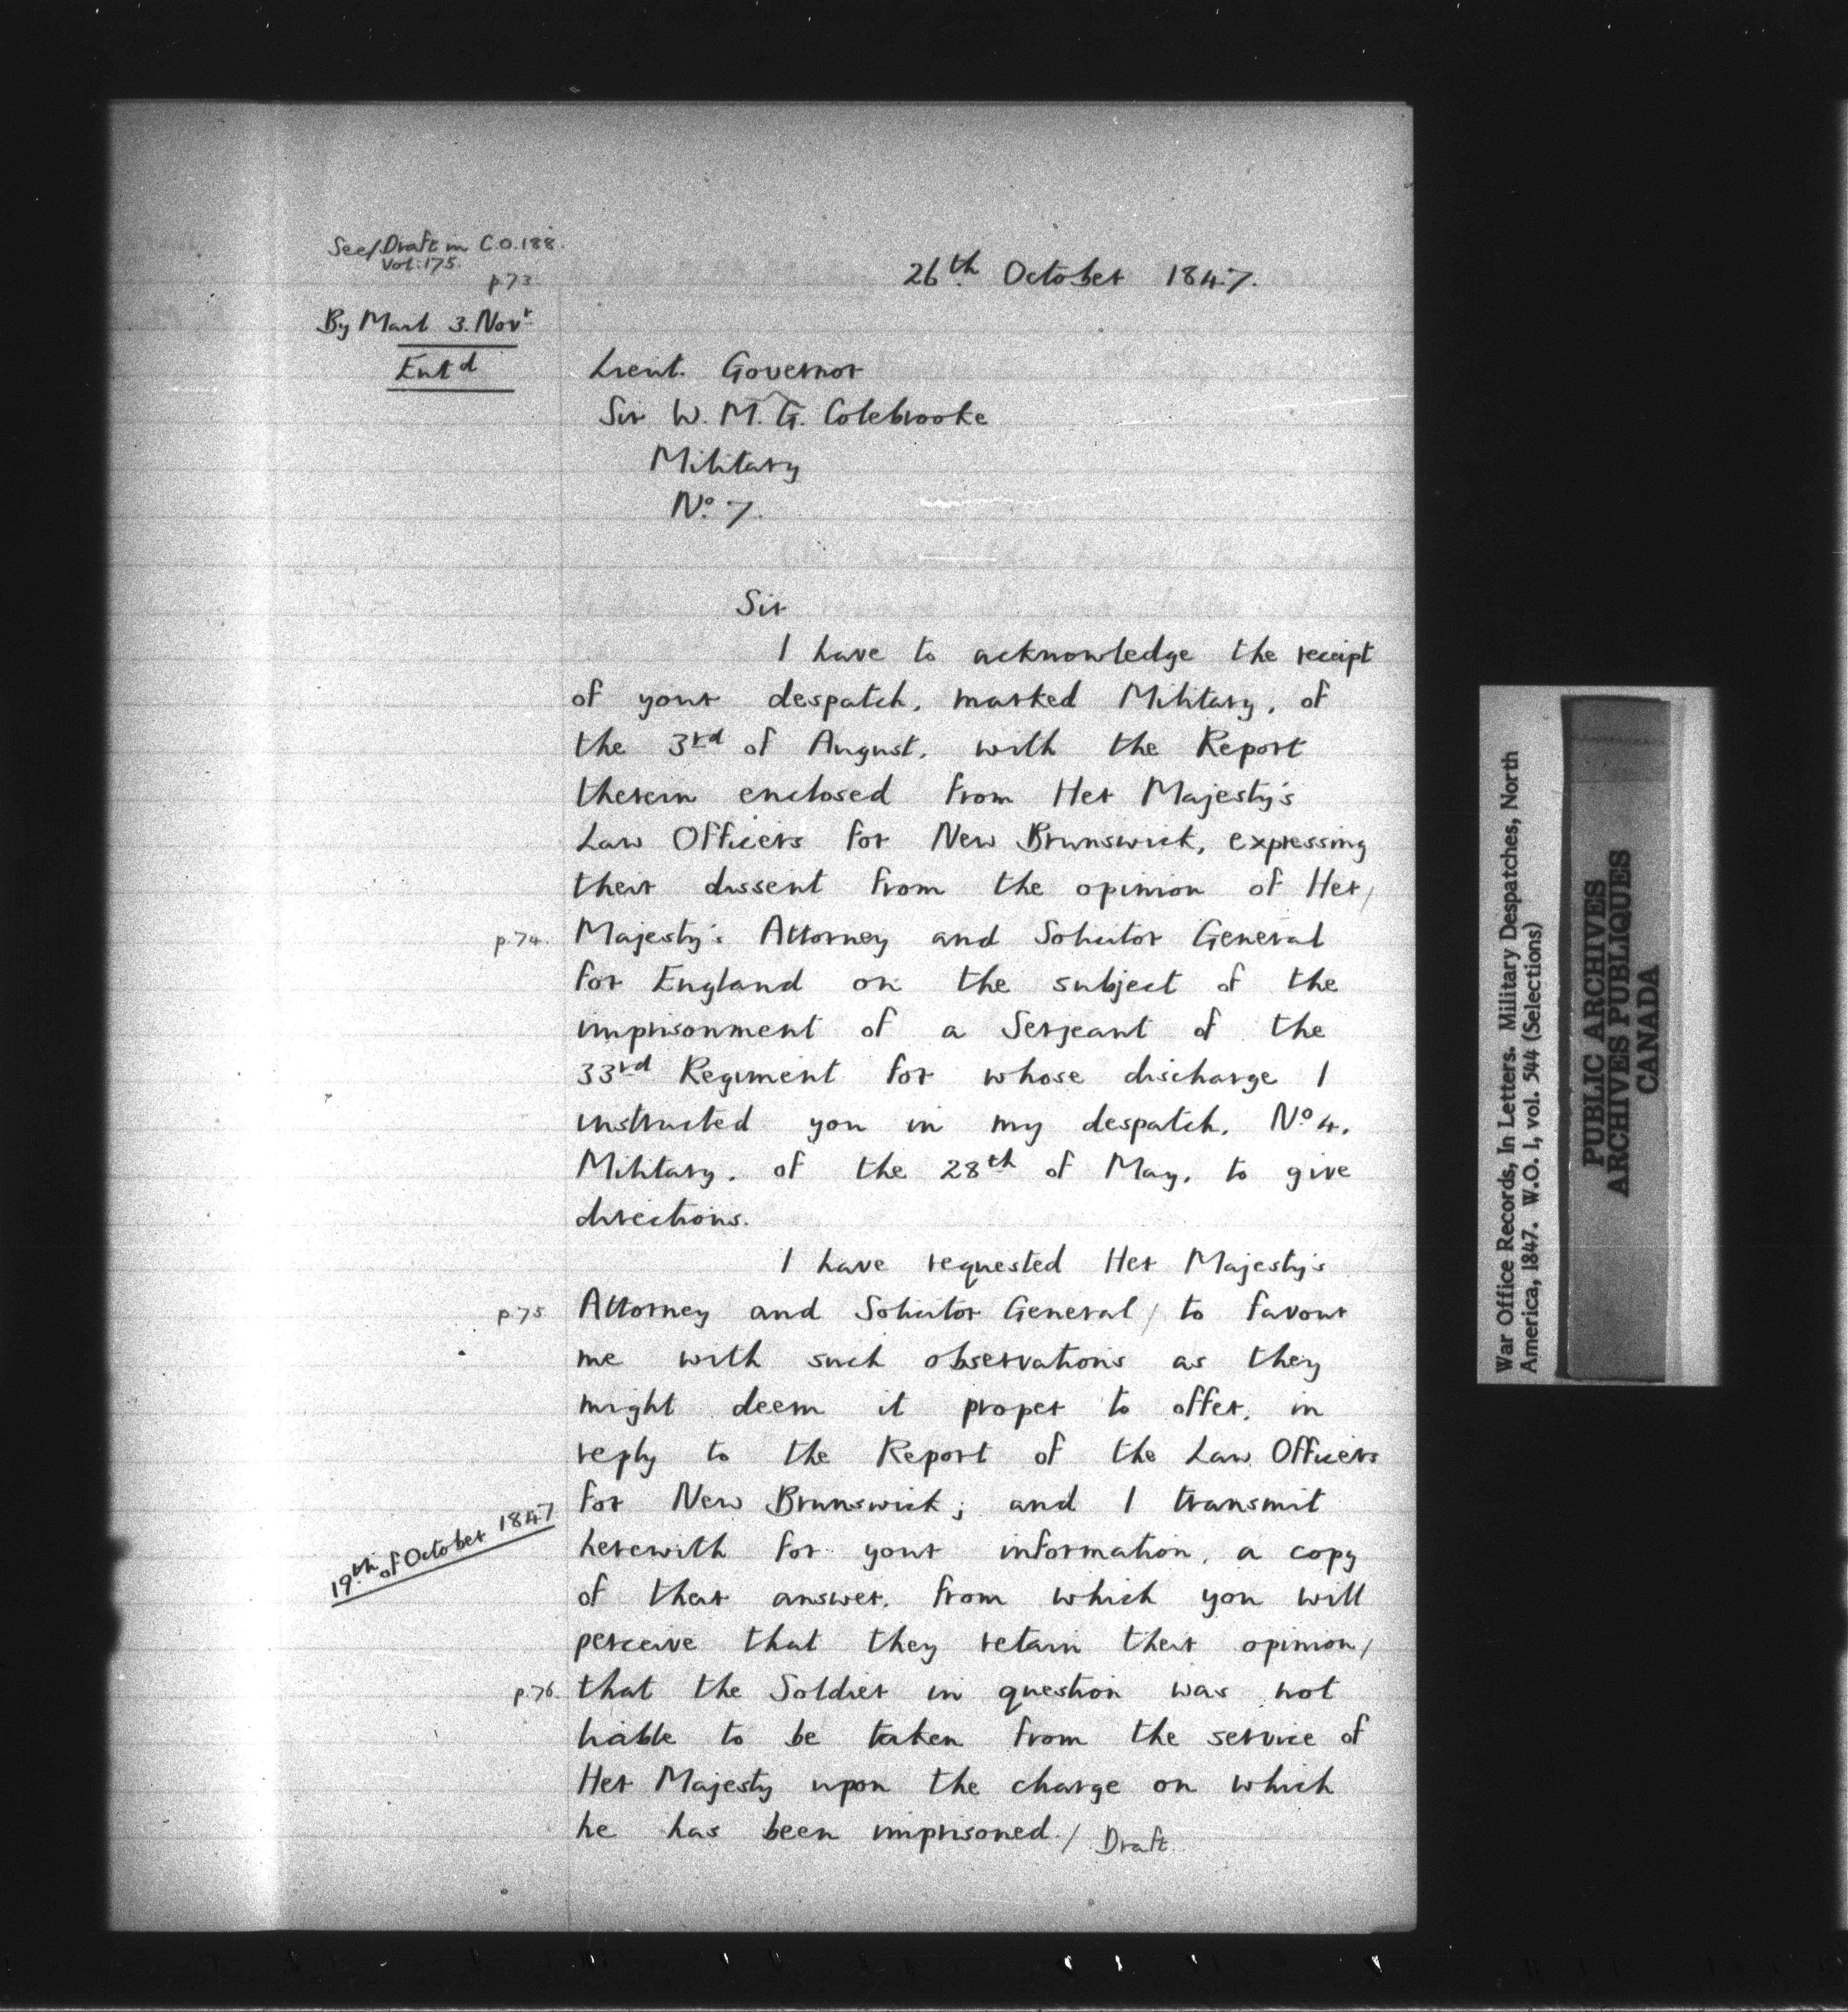 See/Draft in C.O.188.
Vol.175.
p.73.
26th. October 1847.
By Mail 3. Novr
Entd
Lieut. Governor
Sir W. M. G. Colebrooke
Military
No. 7.
Sir
I have to acknowledge the receipt
of your despatch, marked Military, of
the 3rd of August, with the Report
therein enclosed from Her Majesty's
Law Officers for New Brunswick, expressing
their dissent from the opinion of Her/
p.74. Majesty's Attorney and Solicitor General
for England on the subject of the
imprisonment of a Serjeant of the
33rd Regiment for whose discharge I
instructed you in my despatch, No 4,
Military, of the 28th of May, to give
directions.
I have requested Her Majesty's
p.75 Attorney and Solicitor General/ to favour
me with such observations as they
might deem it proper to offer, in
reply to the Report of the Law Officers
for New Brunswick; and I transmit
19th. of October 1847
herewith for your information, a copy
of their answer, from which you will
perceive that they retain their opinion/
p.76. that the Soldier in question was not
liable to be taken from the service of
Her Majesty upon the charge on which
he has been imprisoned./ Draft
War Office Records, In Letters. Military Despatches, North
America, 1847. W.O. 1, vol. 544 (Selections)
PUBLIC ARCHIVES
ARCHIVES PUBLIQUES
CANADA